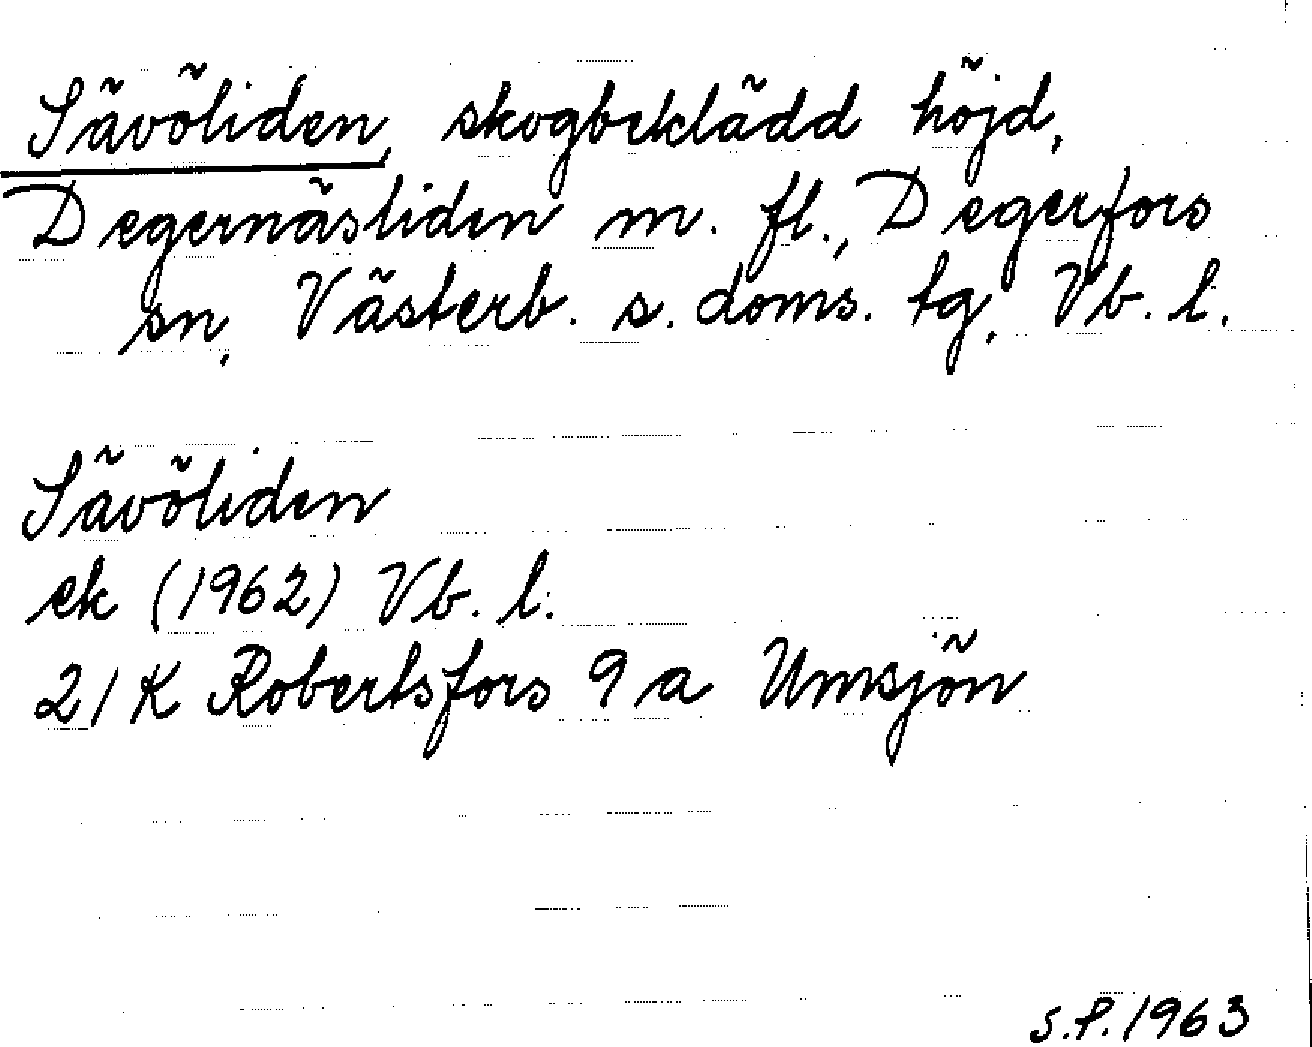 Sävöliden, skogbeklädd höjd,
Degernäsliden m. fl., Degerfors
sn, Västerb. s. doms. tg, Vb. l.
Sävöliden
ek (1962) Vb. l.
21 K Robertsfors 9 a Umsjön
S.P. 1963